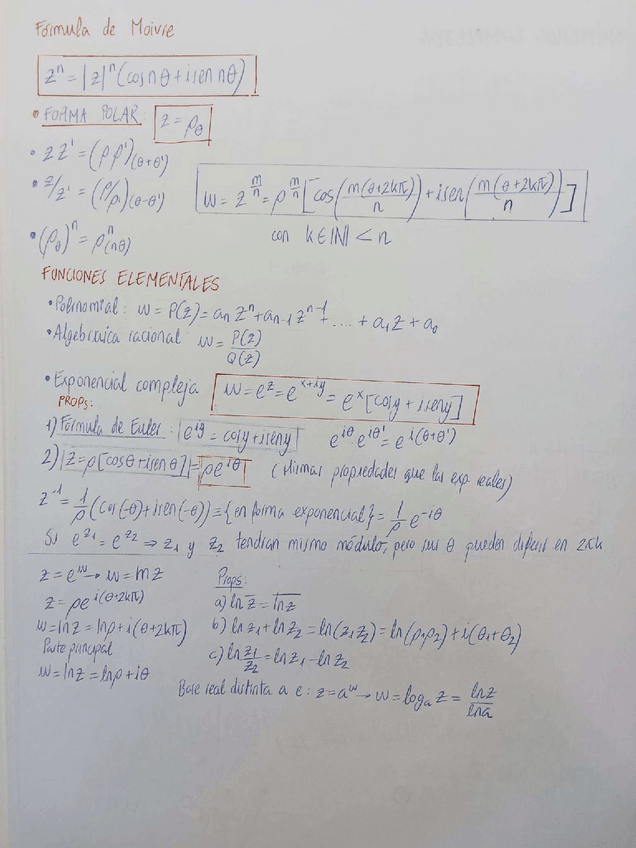 Fórmula de Moivre
zⁿ = |z|ⁿ (cos nθ + i sen nθ)
• FORMA POLAR: z = ρ_θ
• z z' = (ρ ρ')_(θ+θ')
• z/z' = (ρ/ρ')_(θ-θ')
w = z^(m/n) = ρ^(m/n) [cos(m(θ+2kπ)/n) + i sen(m(θ+2kπ)/n)]
• (ρ_θ)ⁿ = ρⁿ_(nθ)
con k∈|N| < n
FUNCIONES ELEMENTALES
• Polinomial: w = P(z) = aₙ zⁿ + aₙ₋₁ zⁿ⁻¹ + .... + a₁z + a₀
• Algebraica racional w = P(z)/Q(z)
• Exponencial compleja w = e^z = e^(x+iy) = e^x [cos y + i sen y]
PROPS:
1) Fórmula de Euler: e^(iy) = cos y + i sen y e^(iθ) e^(iθ') = e^(i(θ+θ'))
2) z = ρ[cosθ + i senθ] = ρe^(iθ) (Mismas propiedades que las exp reales)
z⁻¹ = 1/ρ (cos(-θ) + i sen(-θ)) ≡ {en forma exponencial} = 1/ρ e^(-iθ)
Si e^(z₁) = e^(z₂) ⇒ z₁ y z₂ tendran mismo módulo, pero sus θ pueden diferir en 2πk
z = e^w → w = ln z
z = ρe^(i(θ+2kπ))
w = ln z = ln ρ + i(θ+2kπ)
Parte principal
w = ln z = ln ρ + iθ
Props:
a) ln z̅ = \overline{ln z}
b) ln z₁ + ln z₂ = ln(z₁z₂) = ln(ρ₁ρ₂) + i(θ₁+θ₂)
c) ln z₁/z₂ = ln z₁ - ln z₂
Base real distinta a e: z = a^w → w = logₐ z = ln z/ln a